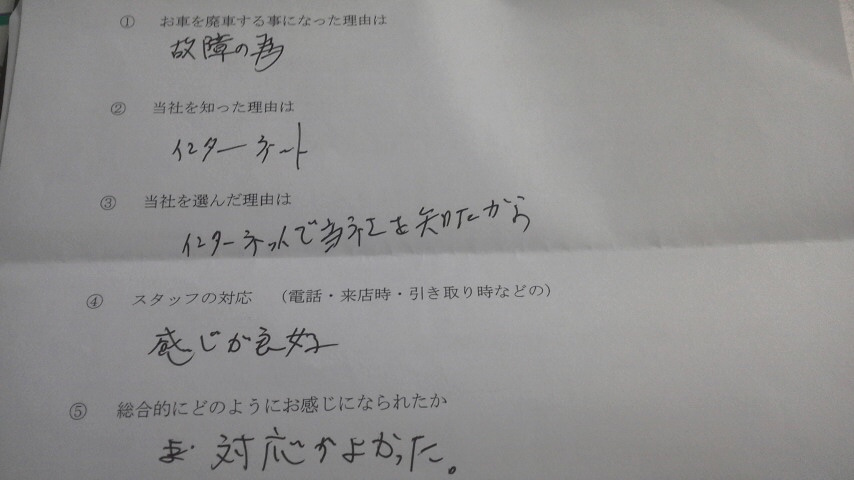 ① お車を廃車する事になった理由は
故障の為
② 当社を知った理由は
インターネット
③ 当社を選んだ理由は
インターネットで当社を知たから
④ スタッフの対応 (電話・来店時・引き取り時などの)
感じが良好
⑤ 総合的にどのようにお感じになられたか
対応がよかった。